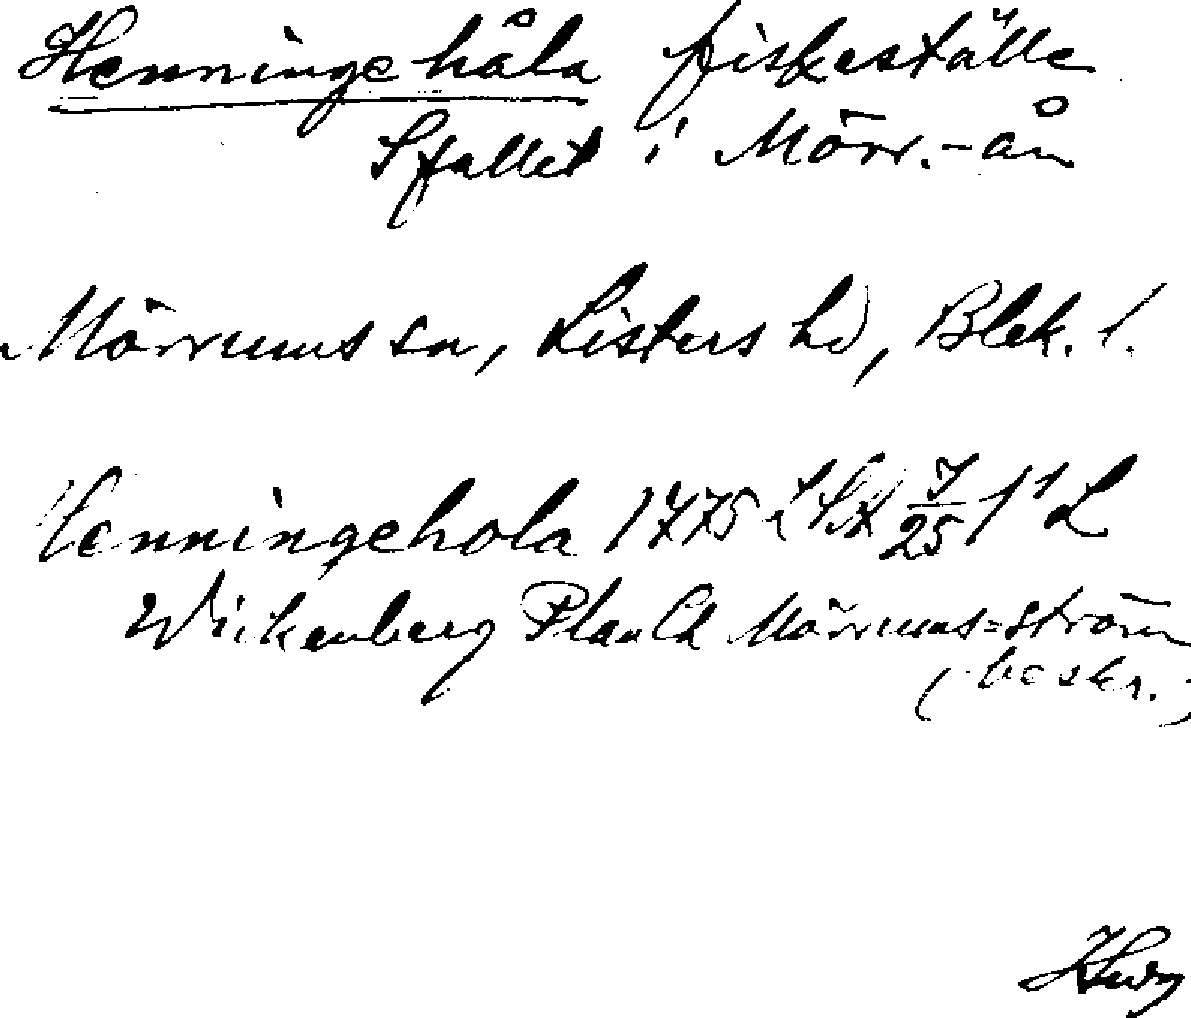 Henningehåla fiskeställe
Sfallet i Mörr.-ån
Mörrums sn, Listers hd, Blek. l.
Henningehola 1775 LSA 7/25 1¹ L
Wickenberg Plan Ch Mörrums=ström
(beskr.)